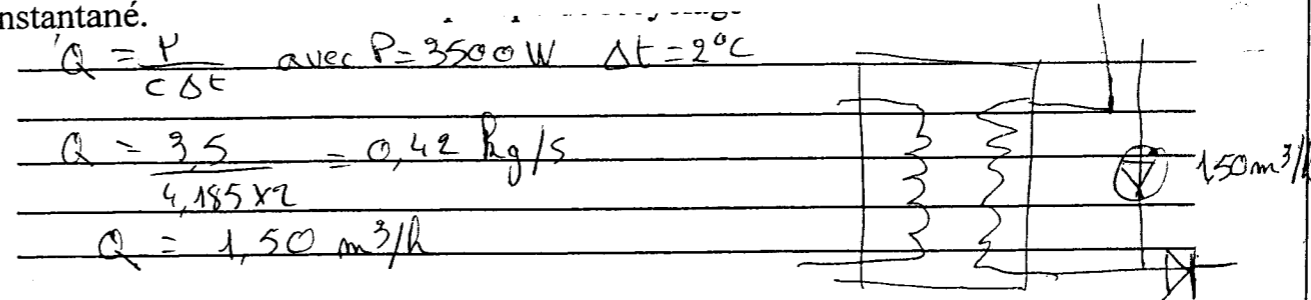 nstantané.
Q = P / (c Δt) avec P = 3500 W Δt = 2°C
Q = 3,5 / (4,185 x 2) = 0,42 kg/s
1,50 m³/h
Q = 1,50 m³/h